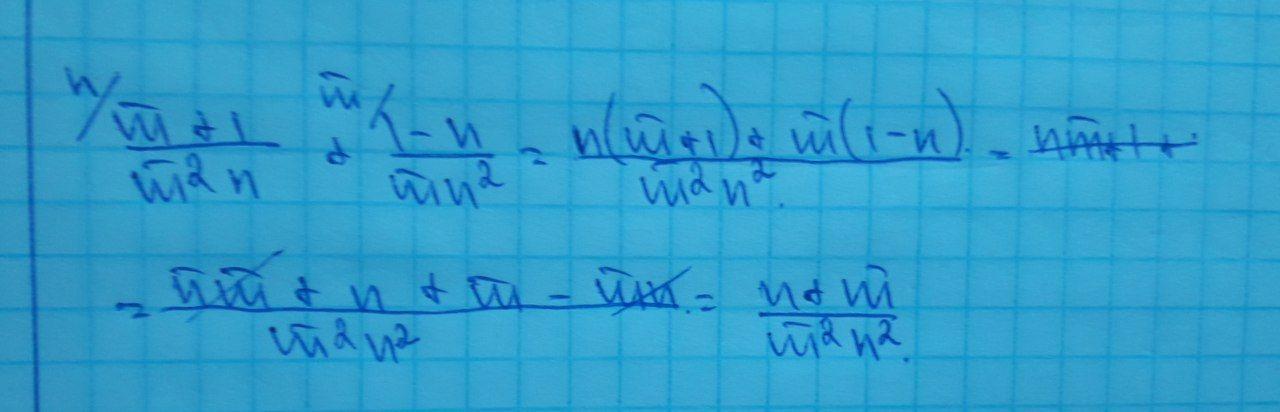 n/ (m+1)/(m²n) + m/ (1-n)/(mn²) = (n(m+1)+m(1-n))/(m²n²) = nm+1+
= (nm+n+m-nm)/(m²n²) = (n+m)/(m²n²)